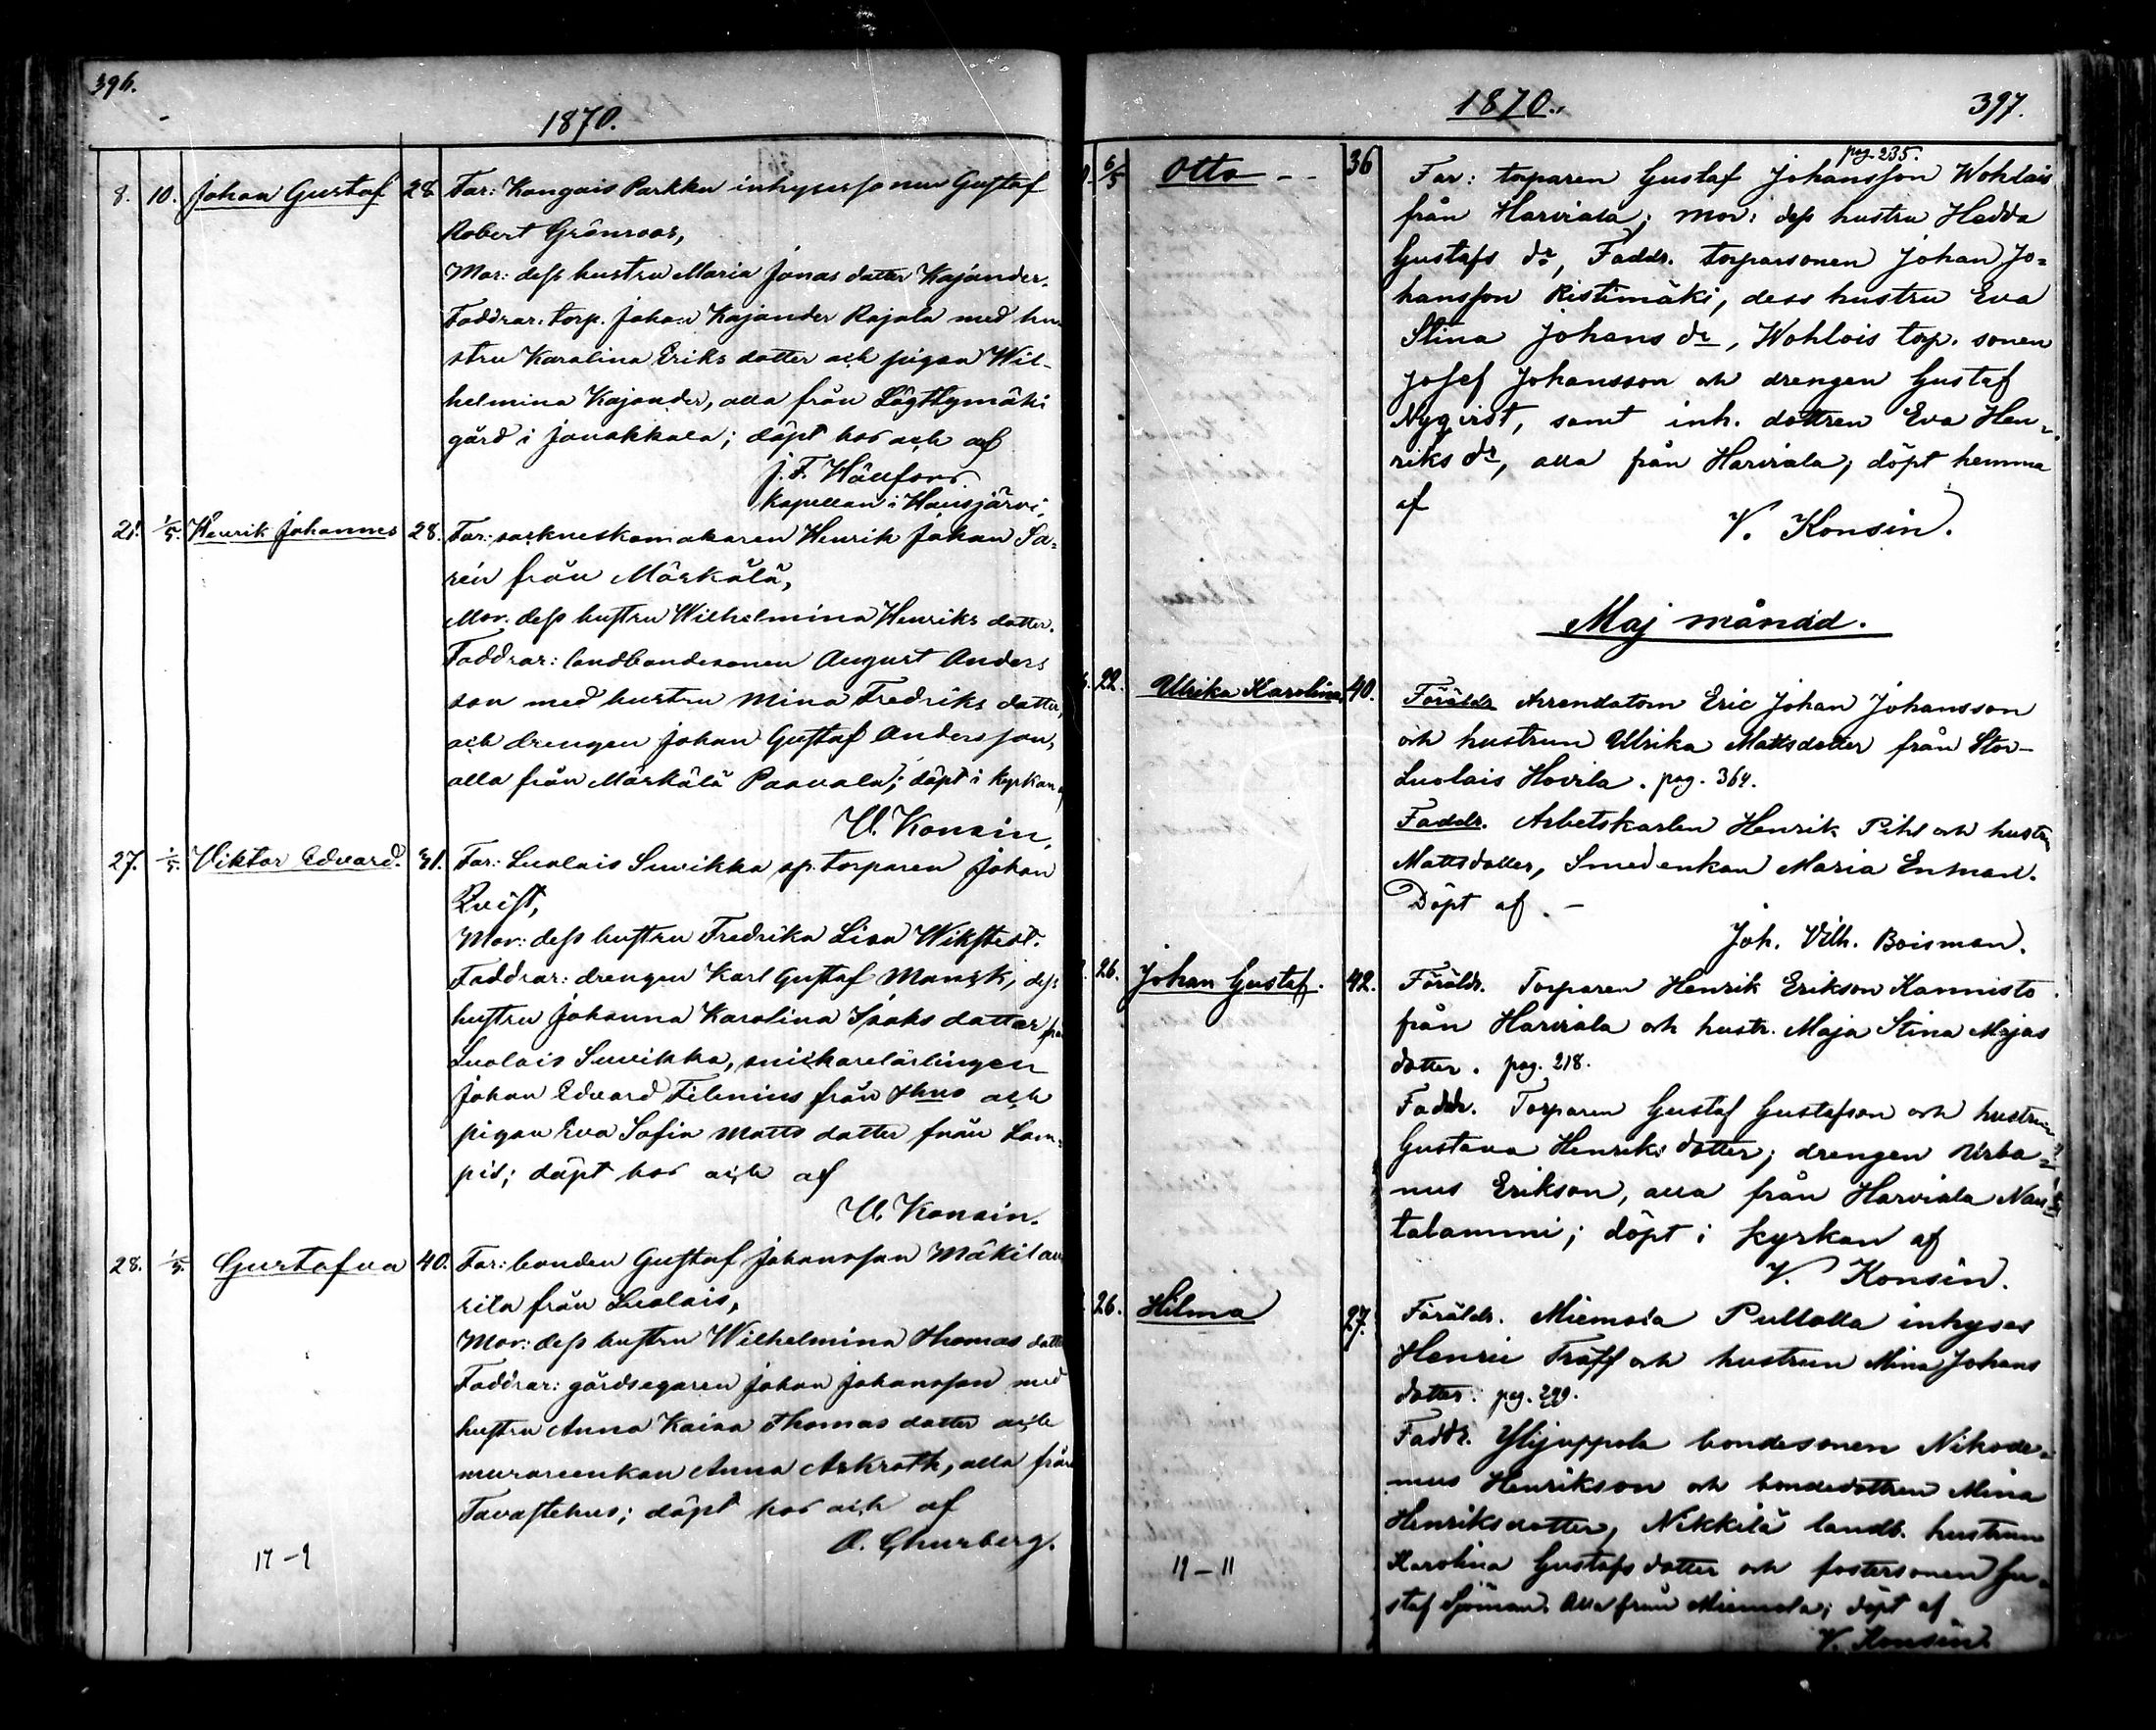 396.
1870.
8. 10. Johan Gustaf 28. Far: Kangais Parkku inhysesonen Gustaf
Robert Grönroos,
Mor: dess hustru Maria Jonas dotter Kajander.
Faddrar: torp. Johan Kajander Rajala med hu-
stru Karolina Eriks dotter och pigan Wil-
helmina Kajander, alla från
gård i Janakkala; döpt hos och af
J. F. Hällfors.
Kapellan i Hausjärvi.
21. 1/5. Henrik Johannes 28. Far: sockneskomakaren Henrik Johan Sa-
rén från Märkälä,
Mor: dess hustru Wilhelmina Henriks dotter.
Faddrar: landbondesonen August Anders
son med hustru Mina Fredriks dotter,
och drengen Johan Gustaf Andersson,
alla från Märkälä Paavala; döpt i kyrkan af
V. Konsin.
27. 1/5. Viktor Edvard. 31. Far: Luolais Suvikka sp. torparen Johan
Qvist,
Mor: dess hustru Fredrika Lisa Wikstedt.
Faddrar: drengen Karl Gustaf Mansk, dess
hustru Johanna Karolina Isaks dotter från
Luolais Suvikka, snickarelärlingen
Johan Edvard Filenius från Thus och
pigan Eva Sofia Matts dotter från Lam-
pis; döpt hos och af
V. Konsin.
28. 1/5. Gustafva 40. Far: bonden Gustaf Johansson Mäkilau
rila från Luolais,
Mor: dess hustru Wilhelmina Thomas dotter
Faddrar: gårdsegaren Johan Johansson med
hustru Anna Kaisa Thomas dotter och
murareenkan Anna Askroth, alla från
Tavastehus; döpt hos och af
A. Churberg.
17-9
1870. 397.
pag. 235.
6/5 Otto -- 36 Far: torparen Gustaf Johansson Wohlois
från Harviala; mor: dess hustru Hedda
Gustafs dr, Faddr. torparsonen Johan Jo-
hansson Ristimäki, dess hustru Eva
Stina Johans dr, Wohlois torp. sonen
Josef Johansson och drengen Gustaf
Nyqvist, samt inh. dottren Eva Hen-
riks dr, alla från Harviala; döpt hemma
af
V. Konsin.
Maj månad.
22. Ulrika Karolina 40. Föräldr. Arrendatorn Eric Johan Johansson
och hustrun Ulrika Mattsdotter från Stor-
Luolais Hovila. pag. 364.
Faddr. Arbetskarlen Henrik Pihl och hustru
Mattsdotter, Smedenkan Maria Enman.
Döpt af. -
Joh. Vilh. Boisman.
26. Johan Gustaf. 42. Föräldr. Torparen Henrik Erikson Kannisto
från Harviala och hustr. Maja Stina Majas
dotter. pag. 218.
Faddr. Torparen Gustaf Gustafson och hustrun
Gustava Henriks dotter; drengen Urba-
nus Erikson, alla från Harviala Nau
talammi; döpt i kyrkan af
V. Konsin.
26. Hilma 27. Föräldr. Miemola Pullolla inhyses
Henric Träff och hustrun Mina Johans
dotter. pag. 299.
Faddr. Ylijuppola bondesonen Nikode-
mus Henrikson och bondedottren Mina
Henriksdotter, Nikkilä landb. hustrun
Karolina Gustafs dotter och fostersonen Gu-
staf Sjöman. Alla från Miemola; döpt af
V. Konsin.
19-11